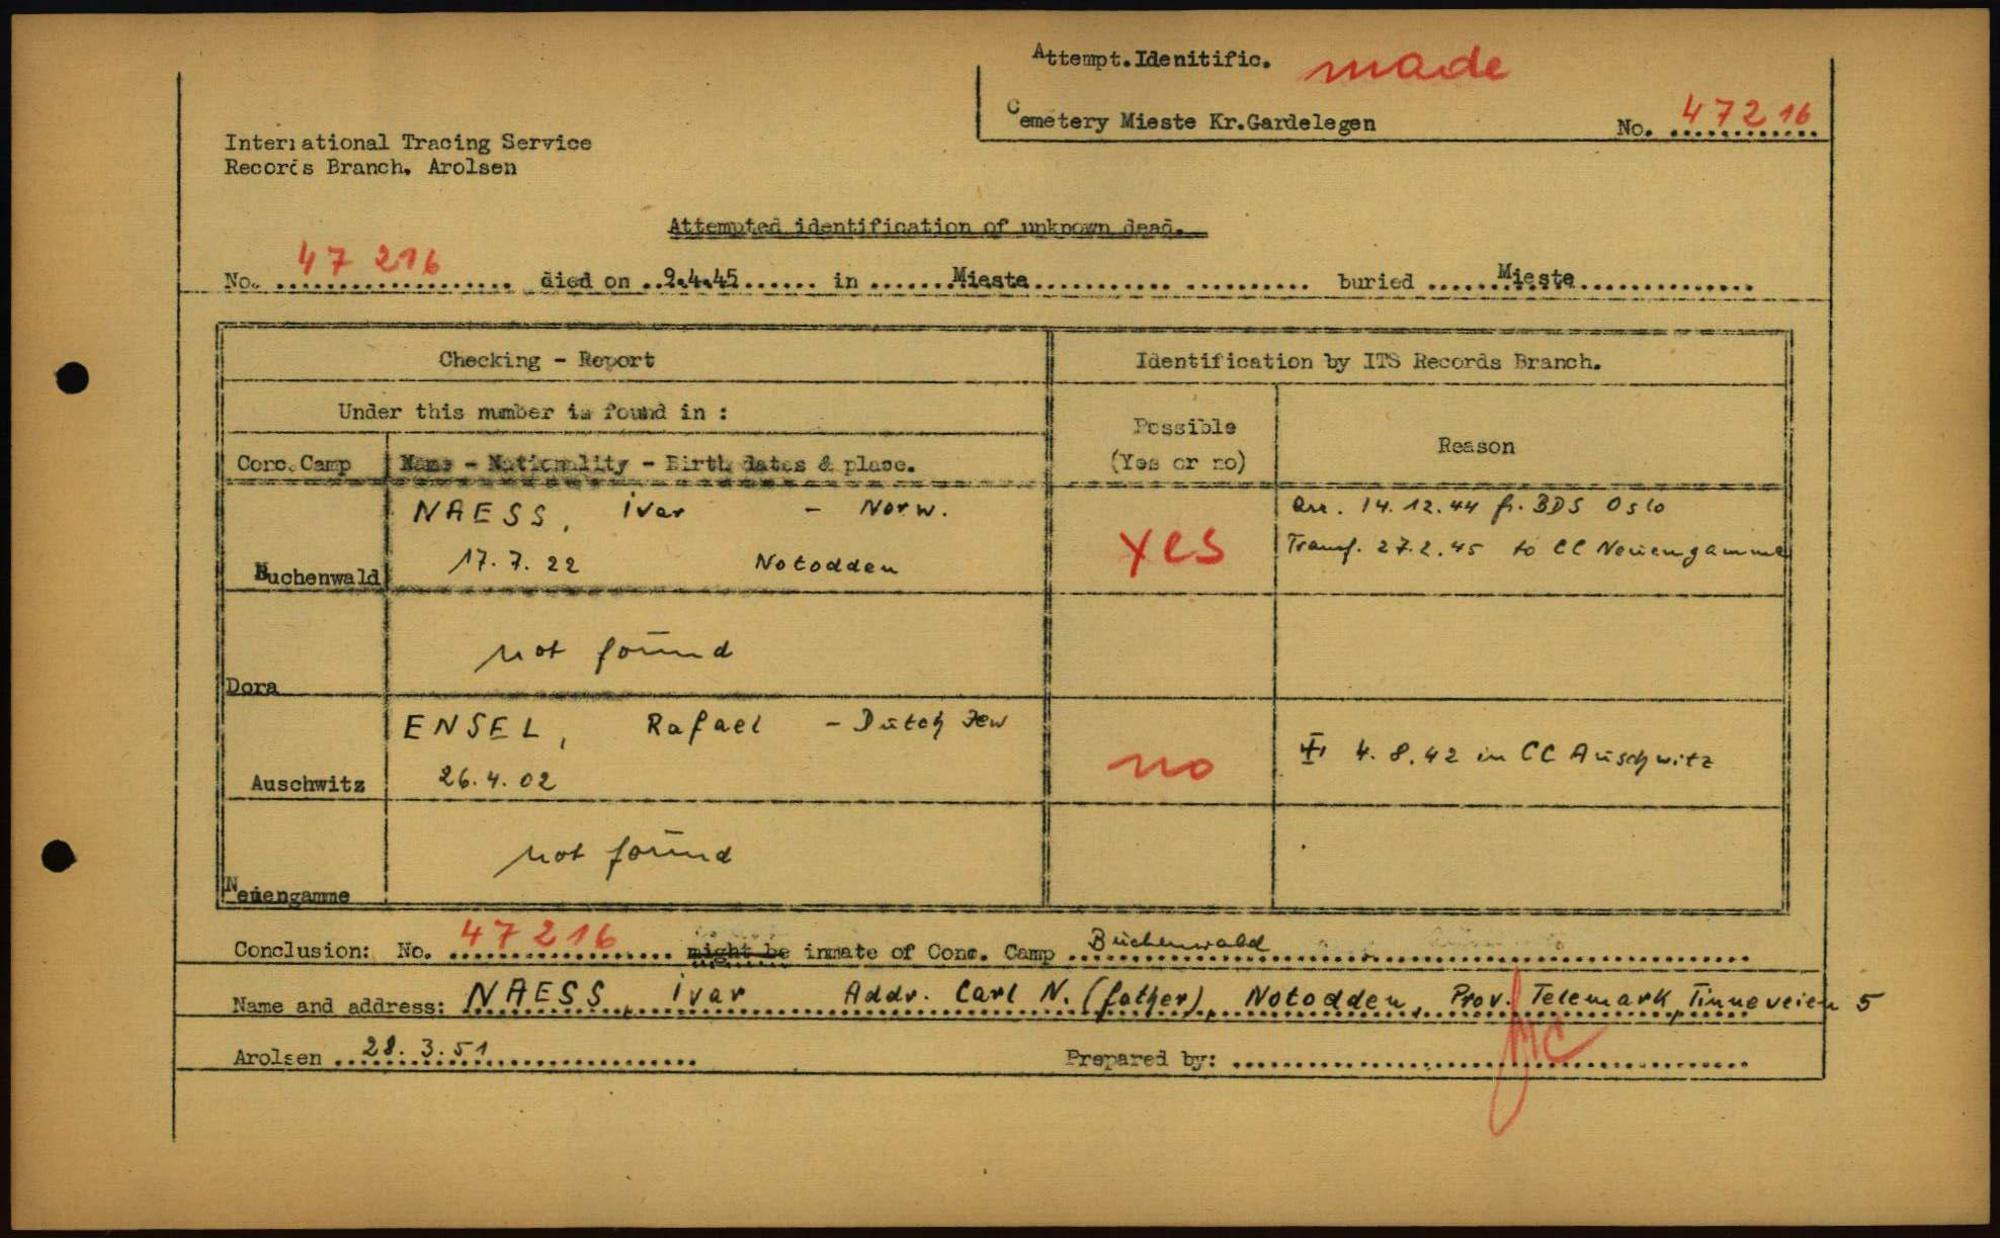 Attempt.Idenitific. made
Cemetery Mieste Kr.Gardelegen No. 47216
International Tracing Service
Records Branch, Arolsen
Attempted identification of unknown dead.
No. 47 216 died on 9.4.45 in Mieste buried Mieste
Checking - Report
Identification by ITS Records Branch.
Under this number is found in :
Possible
(Yes or no)
Reason
Conc.Camp Name - Nationality - Birth dates & place.
NAESS, Ivar - Norw.
Arr. 14.12.44 fr. BDS Oslo
Buchenwald 17.7.22 Notodden
yes
Transf. 27.2.45 to CC Neuengamme
Dora not found
ENSEL, Rafael - Dutch Jew
Auschwitz 26.4.02
no
4.8.42 in CC Auschwitz
Neuengamme not found
Conclusion: No. 47216 might be inmate of Conc. Camp Buchenwald
Name and address: NAESS, Ivar Addr. Carl N. (father), Notodden, Prov. Telemark, Tinneveien 5
Arolsen 28.3.51 Prepared by: